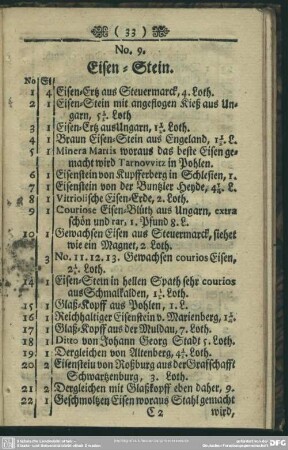 ( 33 )
No. 9.
Eisen-Stein.
No St
1 4 Eisen-Ertz aus Steuermarck, 4. Loth.
2 1 Eisen-Stein mit angeflogen Kieß aus Un-
garn, 5½. Loth
3 1 Eisen-Ertz ausUngarn, 1¾. Loth.
4 1 Braun Eisen-Stein aus Engeland, 1½. L.
5 1 Minera Martis woraus das beste Eisen ge-
macht wird Tarnovvitz in Pohlen.
6 1 Eisenstein von Kupfferberg in Schlesien, 1.
7 1 Eisenstein von der Buntzler Heyde, 4¼. L.
8 1 Vitriolische Eisen-Erde, 2. Loth.
9 1 Couriose Eisen-Blüth aus Ungarn, extra
schön und rar, 1. Pfund 8. L.
10 1 Gewachsen Eisen aus Steuermarck, siehet
wie ein Magnet, 2. Loth.
3 No. 11. 12. 13. Gewachsen courios Eisen,
2½. Loth.
14 1 Eisen-Stein in hellen Spath sehr courios
aus Schmalkalden, 1½. Loth.
15 1 Glaß-Kopff aus Pohlen, 1. L.
16 1 Reichhaltiger Eisenstein v. Marienberg, 1½.
17 1 Glaß-Kopff aus der Muldau, 7. Loth.
18 1 Ditto von Johann Georg Stadt 5. Loth.
19 1 Dergleichen von Altenberg, 4½. Loth.
20 2 Eisenstein von Roßburg aus der Graffschafft
Schwartzenburg, 3. Loth.
21 2 Dergleichen mit Glaßkopff eben daher, 9.
22 1 Geschmoltzen Eisen woraus Stahl gemacht
C 2 wird,